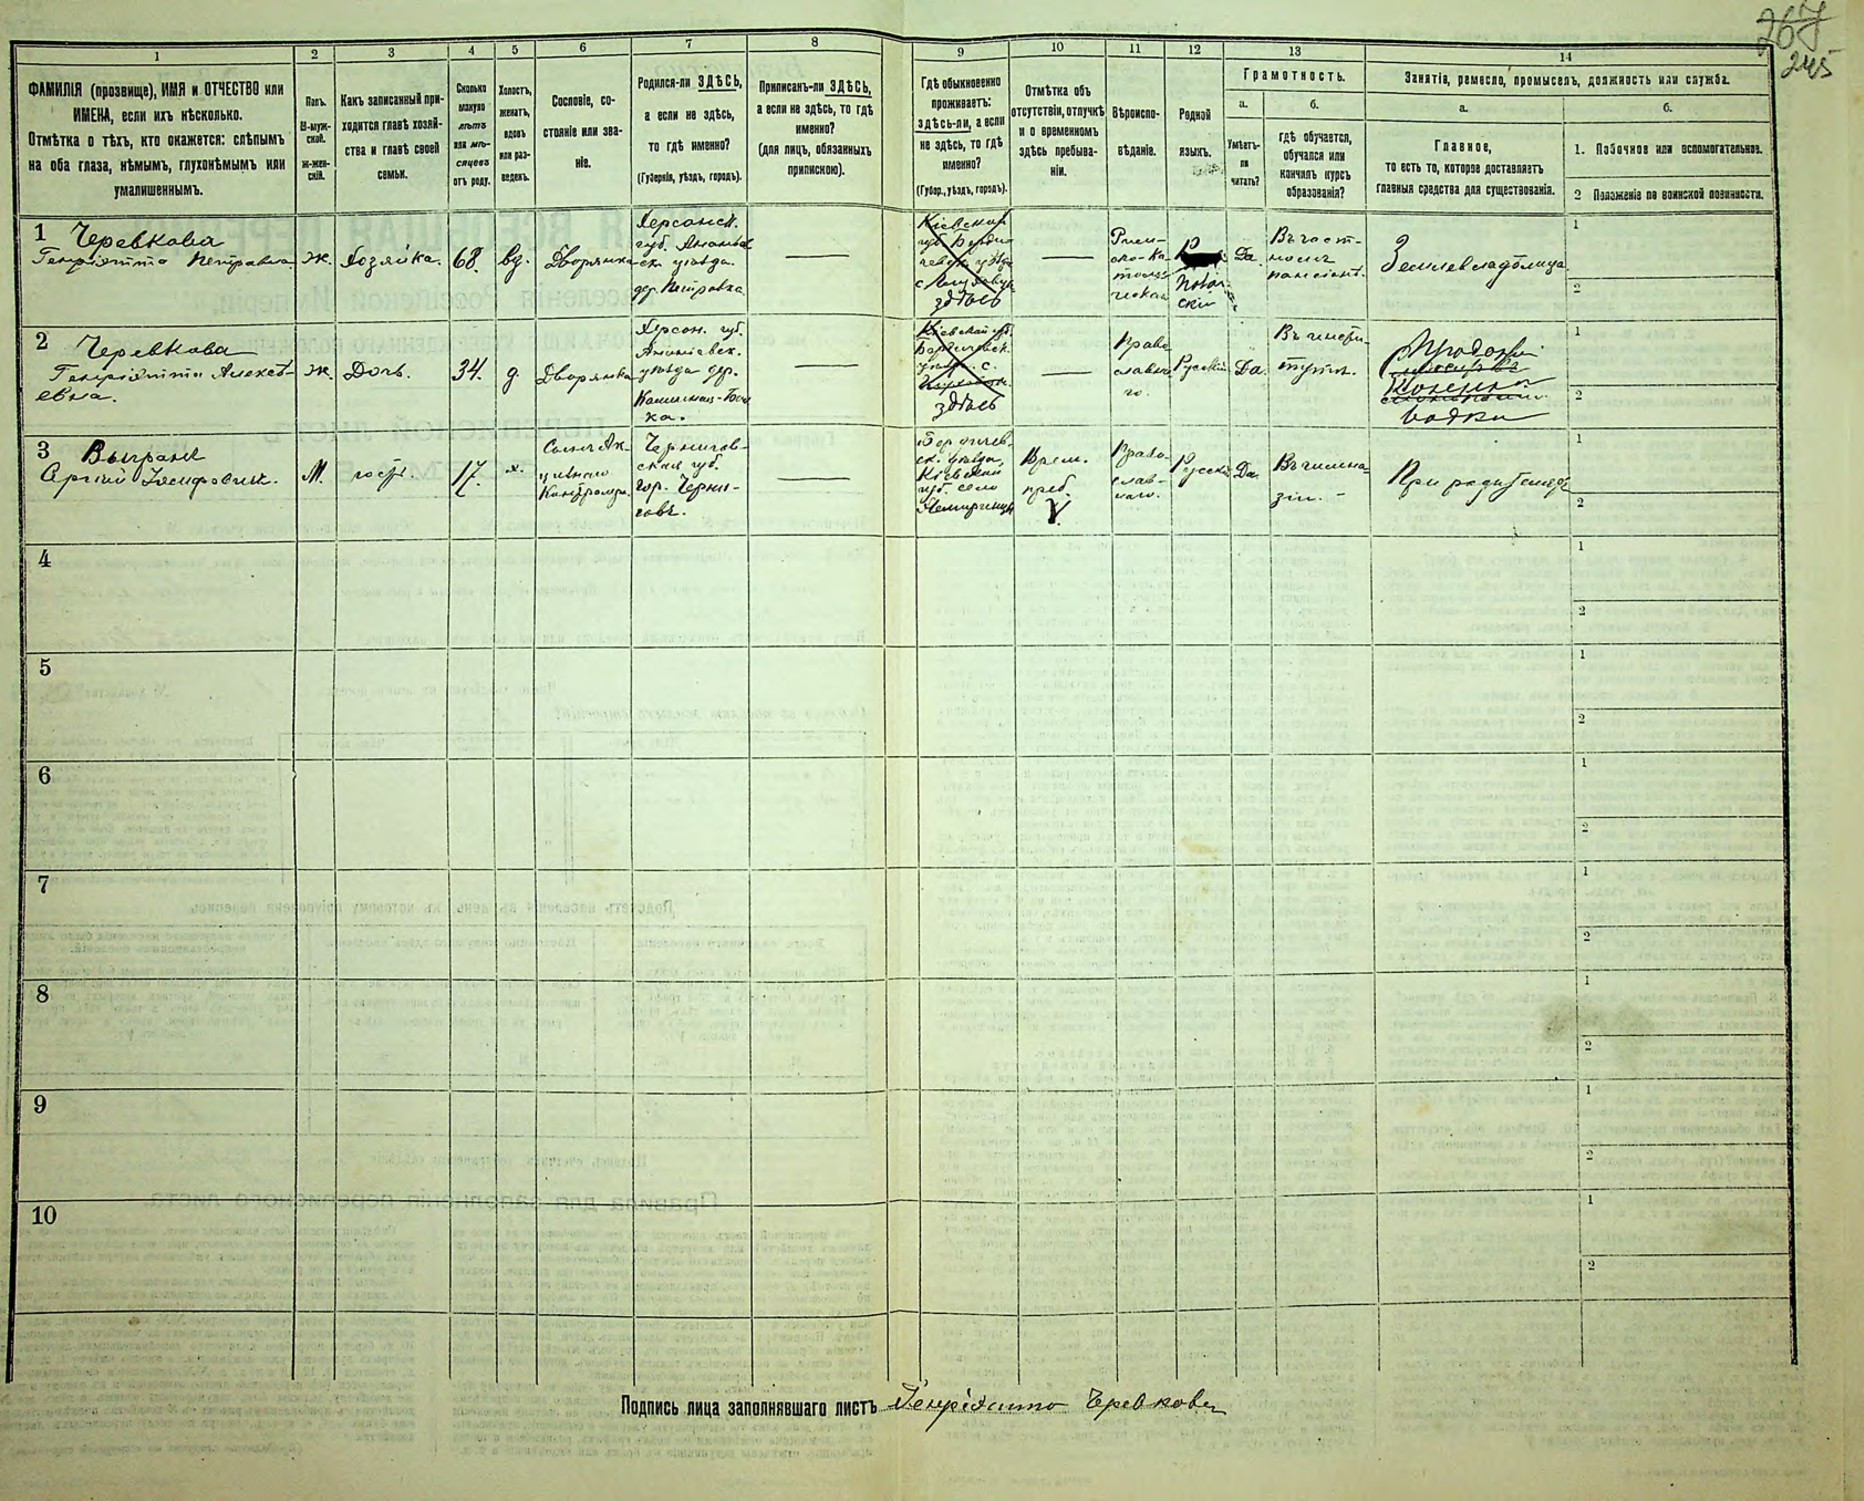 267
245
1
2
3
4
5
6
7
8
9
10
11
12
13
14
ФАМИЛІЯ (прозвище), ИМЯ и ОТЧЕСТВО или
ИМЕНА, если ихъ нѣсколько.
Отмѣтка о тѣхъ, кто окажется: слѣпымъ
на оба глаза, нѣмымъ, глухонѣмымъ или
умалишеннымъ.
Полъ.
М-муж-
ской.
ж-жен-
скій.
Какъ записанный при-
ходится главѣ хозяй-
ства и главѣ своей
семьи.
Сколько
минуло
лѣтъ
или мѣ-
сяцевъ
отъ роду.
Холостъ,
женатъ,
вдовъ
или раз-
веденъ.
Сословіе, со-
стояніе или зва-
ніе.
Родился-ли ЗДѢСЬ,
а если не здѣсь,
то гдѣ именно?
(Губернія, уѣздъ, городъ).
Приписанъ-ли ЗДѢСЬ,
а если не здѣсь, то гдѣ
именно?
(для лицъ, обязанныхъ
припискою).
Гдѣ обыкновенно
проживаетъ:
здѣсь-ли, а если
не здѣсь, то гдѣ
именно?
(Губер., уѣздъ, городъ).
Отмѣтка объ
отсутствіи, отлучкѣ
и о временномъ
здѣсь пребыва-
ніи.
Вѣроиспо-
вѣданіе.
Родной
языкъ.
Грамотность.
а.
б.
Умѣетъ-
ли
читать?
гдѣ обучается,
обучался или
кончилъ курсъ
образованія?
Занятіе, ремесло, промыселъ, должность или служба.
а.
б.
Главное,
то есть то, которое доставляетъ
главныя средства для существованія.
1. Побочное или вспомогательное.
2 Положеніе по воинской повинности.
1 Черевкова
Генріэтта Петровна.
ж.
Хозяйка.
68.
вд.
Дворянка
Херсонск.
губ. Ананьев
ск. уѣзда.
дер. Петровка
Кіевская
губ. Берди
чевск. уѣзд
здѣсь
Рим-
ско-ка
толи
ческая
Да.
Въ част-
номъ
пансіонѣ.
Землевладѣлица
1
2
2 Черевкова
Генріэтта Алексѣ-
евна.
ж.
Дочь.
34.
д.
Дворянка
Херсон. губ.
Ананіевск.
уѣзда дер.
ка.
Кіевская губ.
Бердичевск.
уѣзд. с.
здѣсь
Право
славна
го.
Русскій
Да.
Въ инсти-
тутѣ.
1
2
3
Сергій
М.
гость.
17.
х.
Сынъ Ак-
цизнаго
Контролера.
Чернигов-
ская губ.
гор. Черни-
говъ.
Бердичев-
ск. уѣзда,
Кіевской
губ. село
Врем.
преб.
Право-
слав-
наго.
Русскій
Да.
Въ гимна-
зіи.
При родителяхъ
1
2
4
1
2
5
1
2
6
1
2
7
1
2
8
1
2
9
1
2
10
1
2
Подпись лица заполнявшаго листъ Генріэтта Черевкова